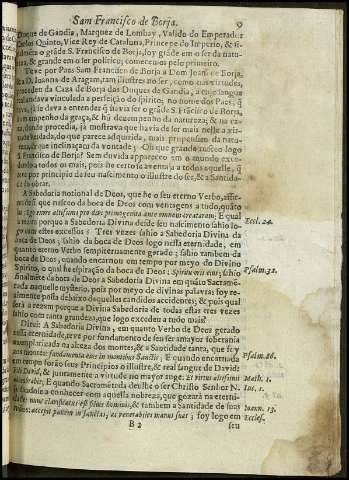 San Francisco de Borja. 9
Duque de Gandia, Marquez de Lombay, Valido do Emperador
Carlos Quinto, Vice Rey de Cataluna, Principe do Imperio, &
o grãde S. Francisco de Borja, foy grãde em o ser da natu-
& grande em o ser politico; comecemos pelo primeiro.
Teve por Paes Sam Francisco de Borja a Dom Joam de Borja,
& a D. Joanna de Aragam; tam illustres no ser, como
proceder da Caza de Borja dos Duques de Gandia, a cujo
andava vinculada a perfeição do espirito; no nome dos Paes,
java já deve a entender q̃ havia ser o grãde S. Francisco de Borja,
empenho da graça, & hũ dezempenho da natureza; & na ca-
za, donde procedia, já mostrava que havia de ser mais nelle a vir-
tude herdada, do que adquirida, mais propensam da natu-
reza, que inclinaçam da vontade; Oh que grande nasceo logo
S. Francisco de Borja! Sem duvida appareceo em o mundo exce-
dendo a todos os mais, pois de certo se aventaja a todos aquelle, q̃
teve por principio de seu nascimento o illustre do ser, & a Santidade
da obrar.
A Sabedoria notional de Deos, que he o seu eterno Verbo,
que nasceo da boca de Deos com ventagens a tudo, quãto
Ego ex ore altissimi prodivi primogenita ante omnem creaturam; E qual
a rezam porque a Sabedoria Divina desde seu nascimento logo
com estes excessos? Tres vezes sahio a Sabedoria Divina da
boca de Deos; sahio da boca de Deos logo nesta eternidade, em
quanto eterno Verbo sempiternamente gerado; sahio tambem da
boca de Deos, quando encarnou em tempo por meyo do Divino
Spirito, o qual he espiração da boca de Deos: Spiritu oris eius; sahio
finalmẽte da boca de Deos a Sabedoria Divina em quãto Sacrame-
tada naquelle mysterio, pois por meyo de divinas palavras; foy re-
almente posta debaixo daquelles candidos accidentes; & pois qual
será a rezam porque a Divina Sabedoria de todas estas tres vezes
sahio com tanta grandeza, que logo excedeu a tudo mais?
Direi: A Sabedoria Divina, em quanto Verbo de Deos gerado
na eternidade, teve por fundamento de seu ser amayor soberania
exemplarizada na alteza dos montes, & a Santidade tanta, que se
nos montes: fundamenta eius in montibus Sanctis; E quando encarnada
em tempo forão seus Principios o illustre, & real sangue de David:
Filii David, & juntamente a virtude no mayor auge: Et virtus altissimi
obumbrabit; E quando Sacramẽtada deulhe o ser Christo Senhor N.
fazendolo a conhecer com aquella nobreza, que gozará na eterni-
dade: nunc clarificatus est filius hominis, & tambem a Santidade de suas
mãos: accepit panem in sanctas, ac venerabiles manus suas; foy logo em
B 2 seu
Eccl. 24.
Psalm. 32.
Psalm. 86.
Math. 1.
Luc. 1.
Ioann. 13.
Eccles.